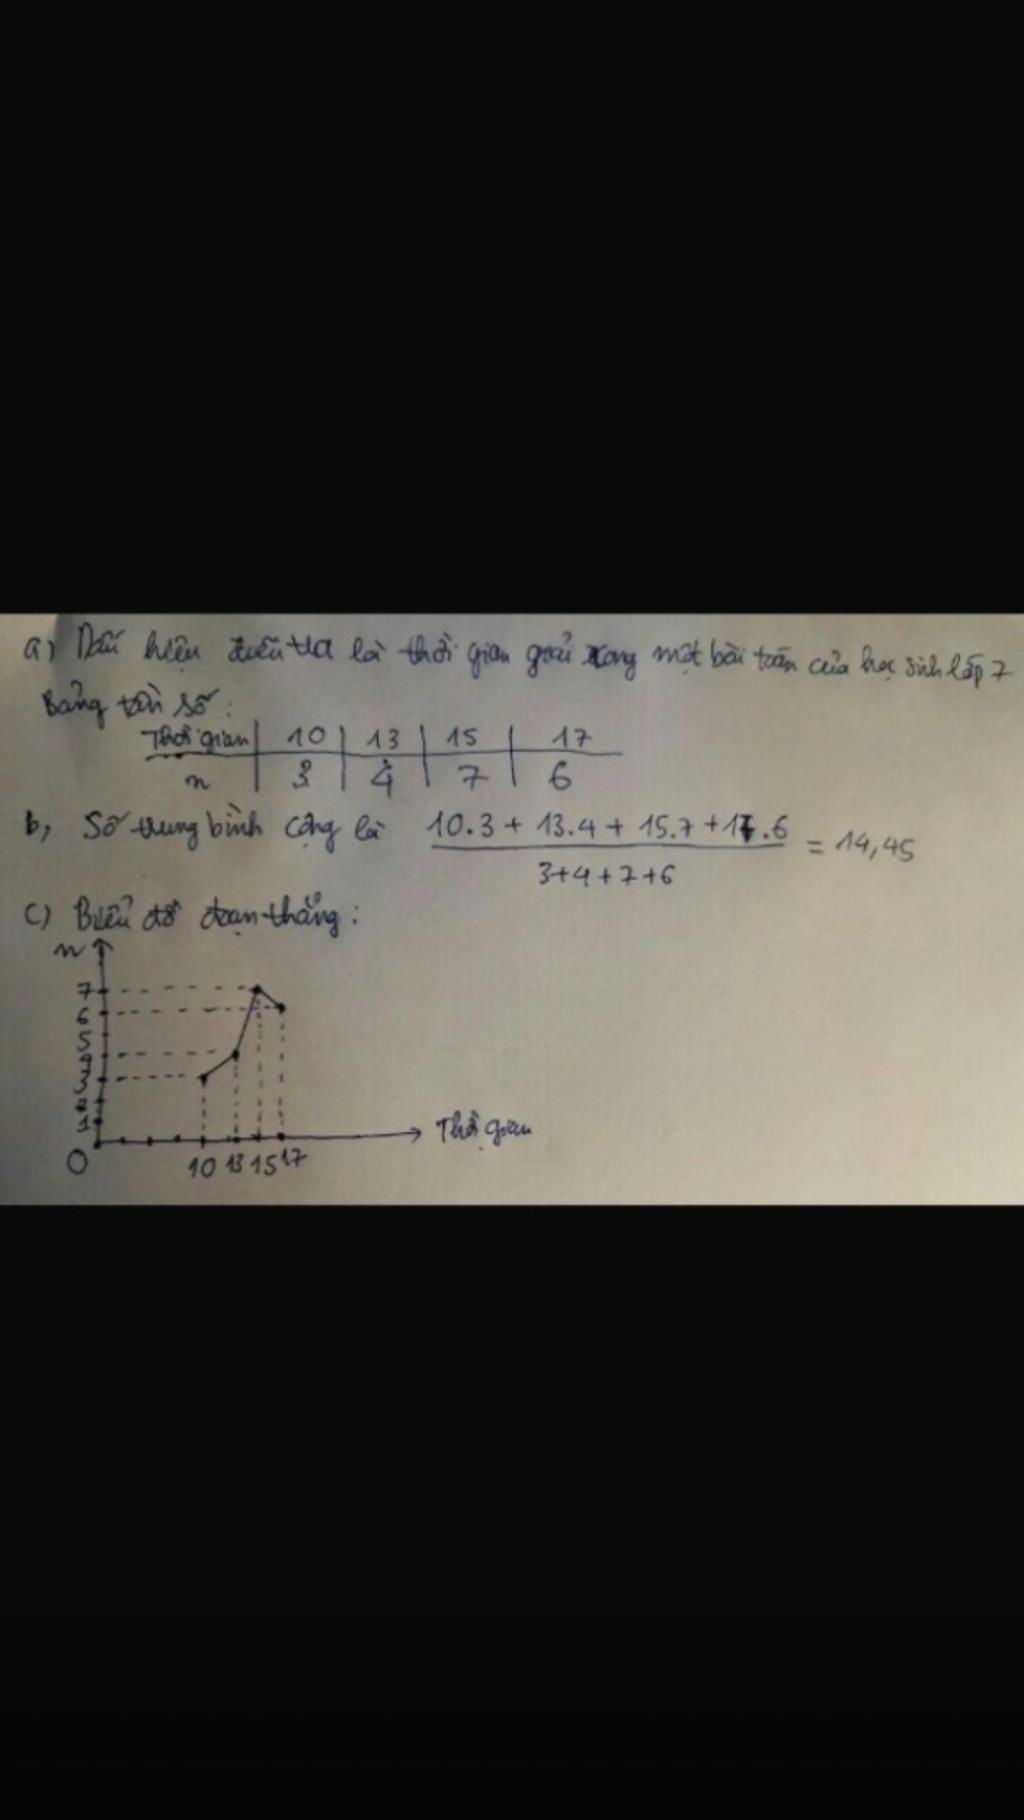 a) Dấu hiệu điều tra là thời gian giải xong một bài toán của học sinh lớp 7
Bảng tần số:
Thời gian 10 13 15 17
n 3 4 7 6
b, Số trung bình cộng là 10.3 + 13.4 + 15.7 + 17.6
3+4+7+6
= 14,45
c) Biểu đồ đoạn thẳng:
n
7
6
5
4
3
2
1
O
10 13 15 17
Thời gian